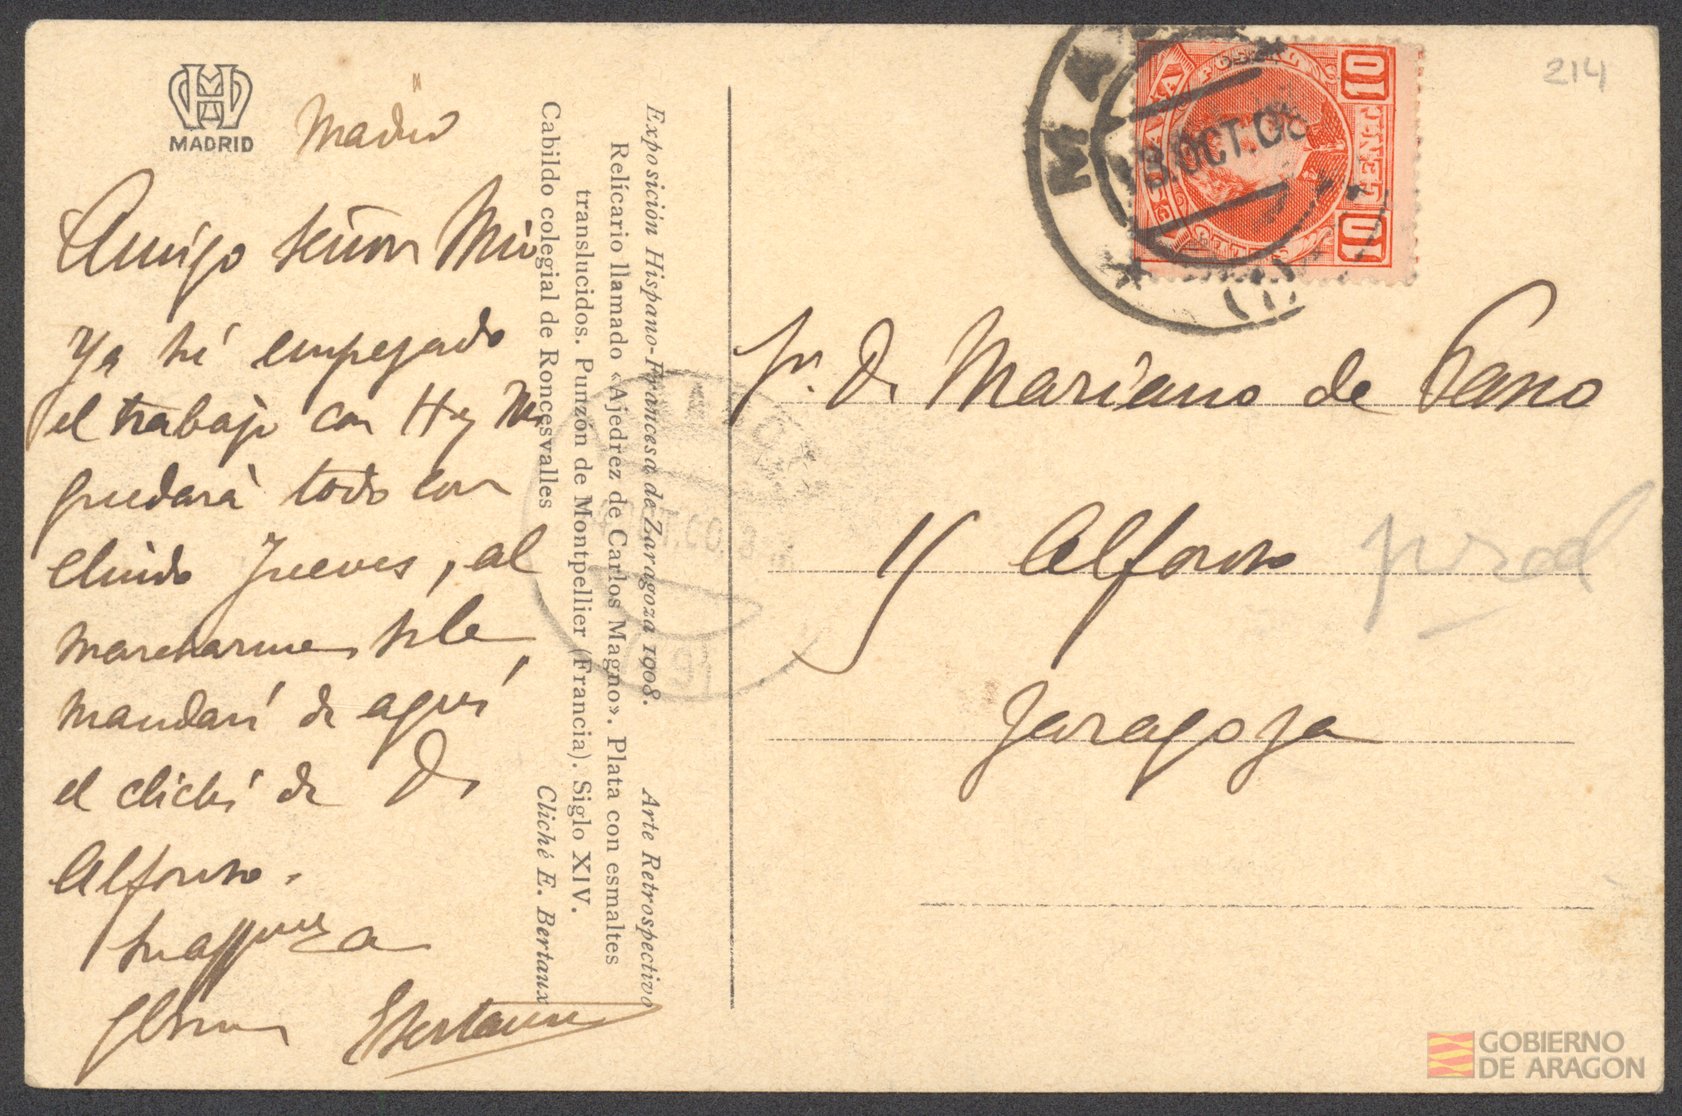 MADRID
Madrid
Amigo señor Mio
Ya hé empezado
el trabajo con H y M
quedará todo con
cluido Jueves, al
marcharme se le
mandaré de aquí
el cliché de D.
Alfonso.
Suyo
EBertaux
Exposición Hispano-Francesa de Zaragoza 1908. Arte Retrospectivo
Relicario llamado «Ajedrez de Carlos Magno». Plata con esmaltes
translucidos. Punzón de Montpellier (Francia). Siglo XIV.
Cabildo colegial de Roncesvalles Cliché E. Bertaux
214
10 CENT.S 10
MA
OCT.08
Sr. Dn Mariano de Pano
Alfonso
Zaragoza
GOBIERNO
DE ARAGON